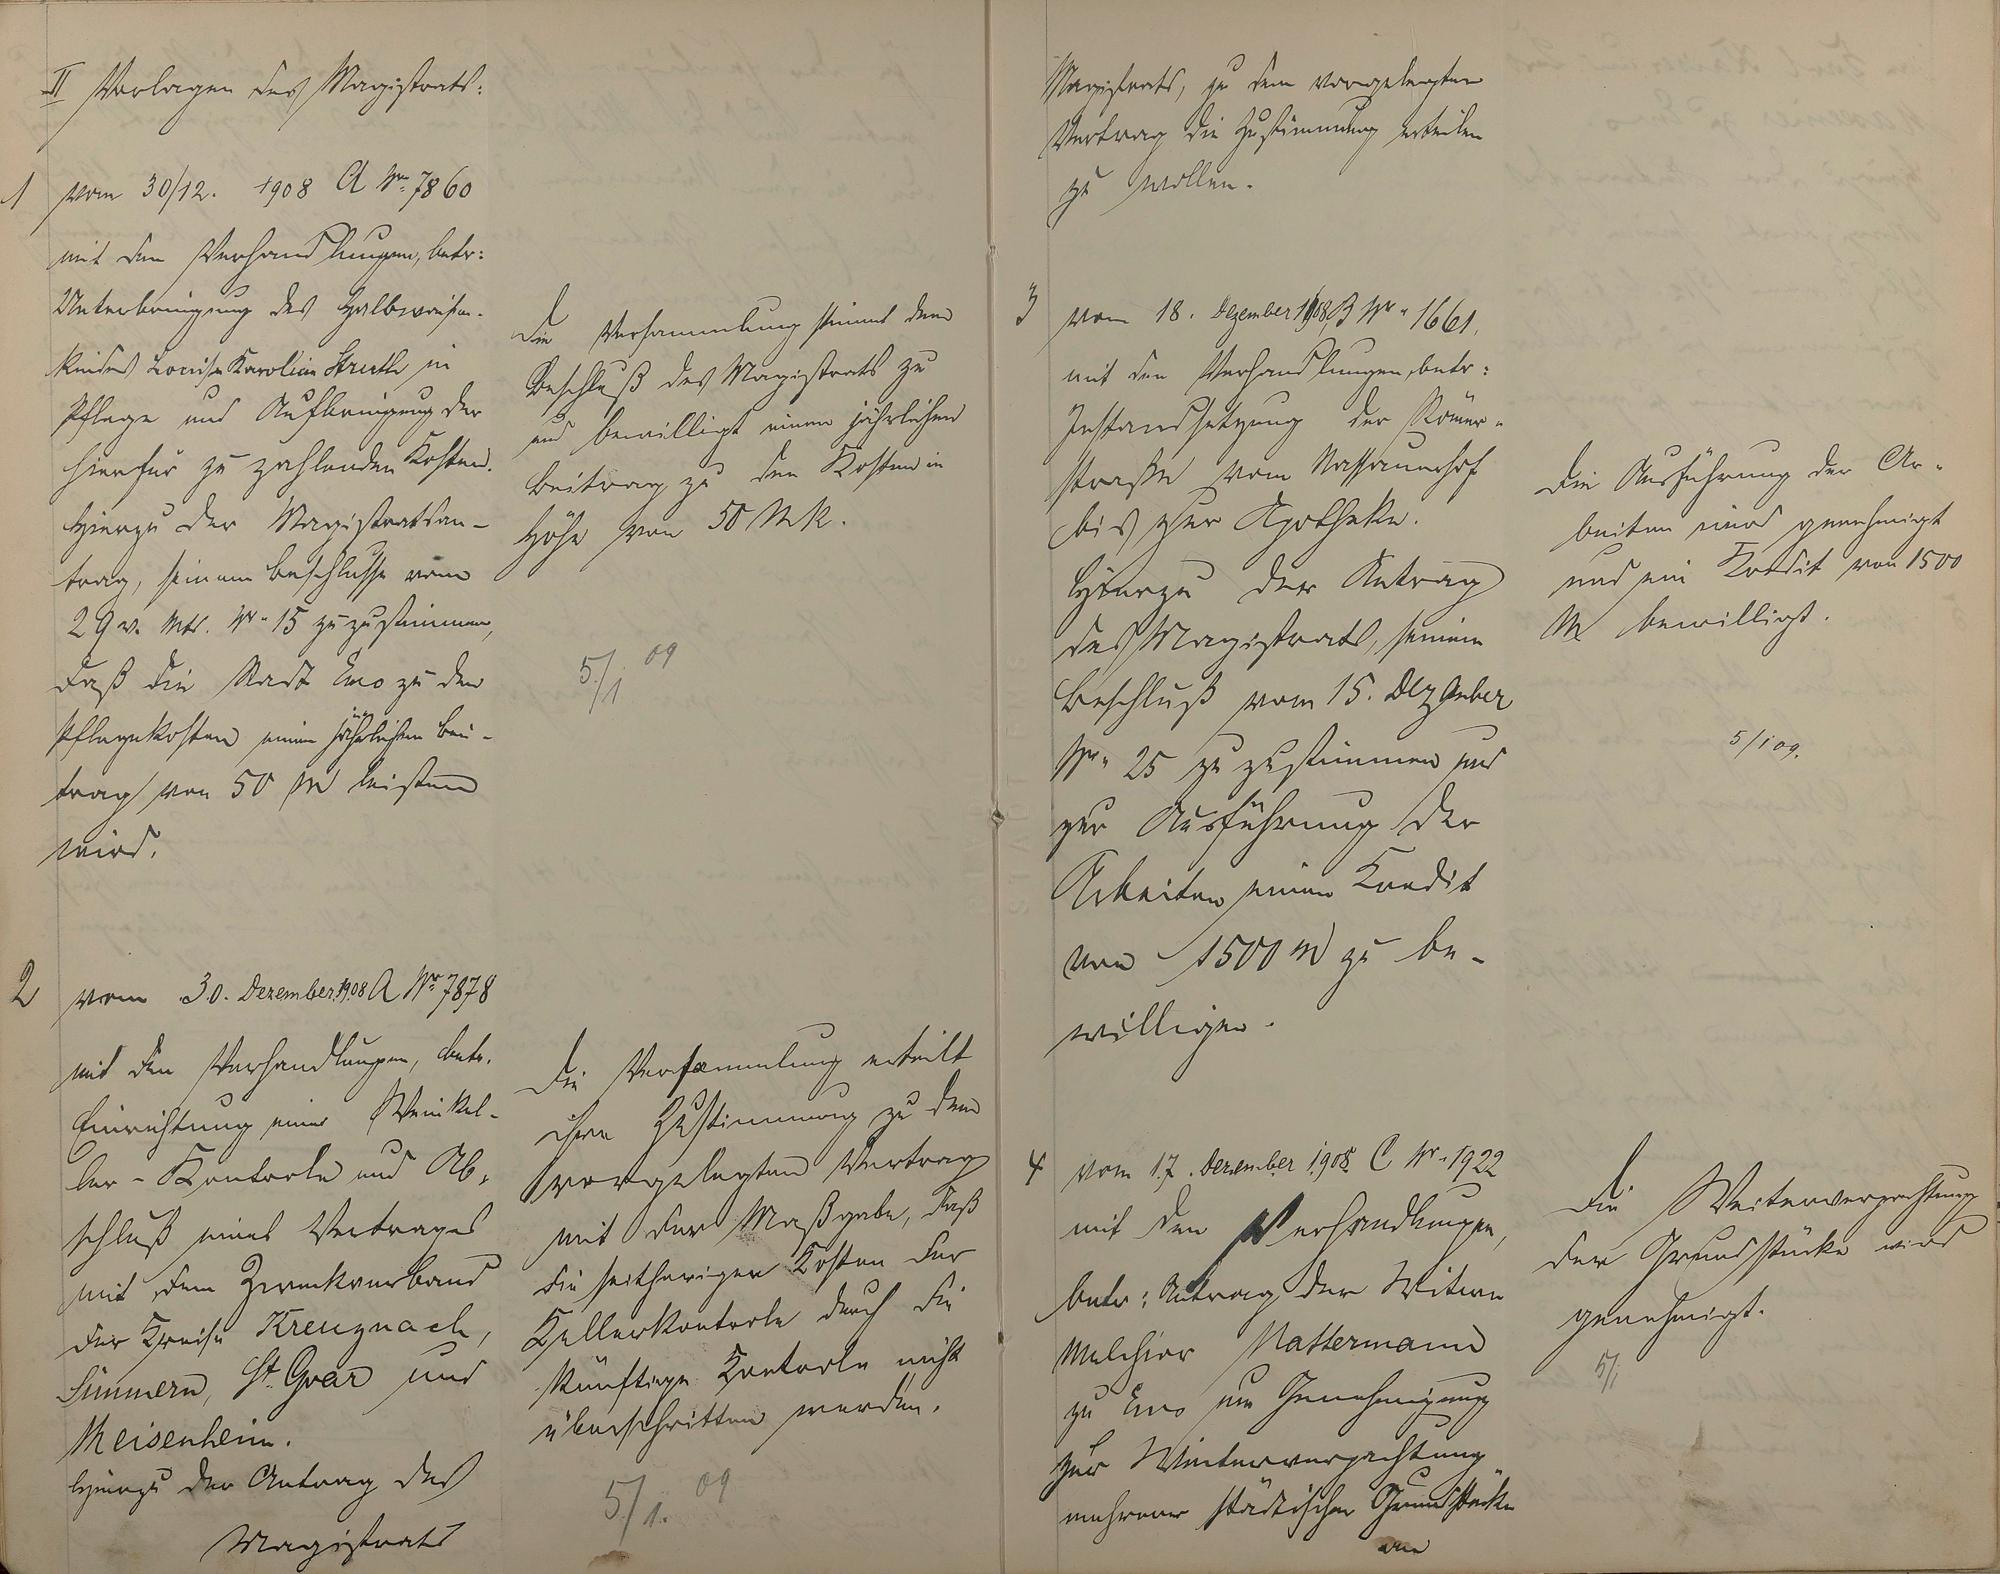 II Vorlagen des Magistrats:
1 vom 30/12. 1908 A Nr. 7860
mit den Verhandlungen, betr:
Unterbringung des Halbwaisen-
kindes Louise Karoline Struth in
Pflege und Aufbringung der
hierfür zu zahlenden Kosten.
Hierzu der Magistratsan-
trag, seinem Beschlusse vom
29 v. Mts. Nr. 15 zuzustimmen,
daß die Stadt Ems zu den
Pflegekosten einen jährlichen Bei-
trag von 50 M leisten
wird.
Die Versammlung stimmt dem
Beschluß des Magistrats zu
und bewilligt einen jährlichen
Beitrag zu den Kosten in
Höhe von 50 Mk.
5/1 09
2 vom 30. Dezember 1908 A Nr. 7878
mit den Verhandlungen, betr.
Einrichtung einer Weinkel-
ler-Kontrole und Ab-
schluß eines Vertrages
mit dem Zweckverband
der Kreise Kreuznach,
Simmern, St. Goar und
Meisenheim.
Hierzu der Antrag des
Magistrats
Die Versammlung erteilt
ihre Zustimmung zu dem
vorgelegten Vertrag
mit der Maßgabe, daß
die seitherigen Kosten der
Kellerkontrole durch die
künftige Kontrole nicht
überschritten werden.
5/1. 09
Magistrats, zu dem vorgelegten
Vertrag die Zustimmung erteilen
zu wollen.
3 vom 18. Dezember 1908 B Nr. 1661.
mit den Verhandlungen, betr:
Instandsetzung der Römer-
straße vom Nassauerhof
bis zur Apotheke.
Hierzu der Antrag
des Magistrats, seinem
Beschluß vom 15. Dezember
Nr. 25 zuzustimmen und
zur Ausführung der
Arbeiten einen Kredit
von 1500 M zu be-
willigen.
Die Ausführung der Ar-
beiten wird genehmigt
und ein Kredit von 1500
M bewilligt.
5/1 09.
4 vom 17. Dezember 1908. C Nr. 1922
mit den Verhandlungen,
betr: Antrag der Witwe
Melchior Nattermann
zu Ems um Genehmigung
zur Weiterverpachtung
mehrerer städtischer Grundstücke
an
Die Weiterverpachtung
der Grundstücke wird
genehmigt.
5/1